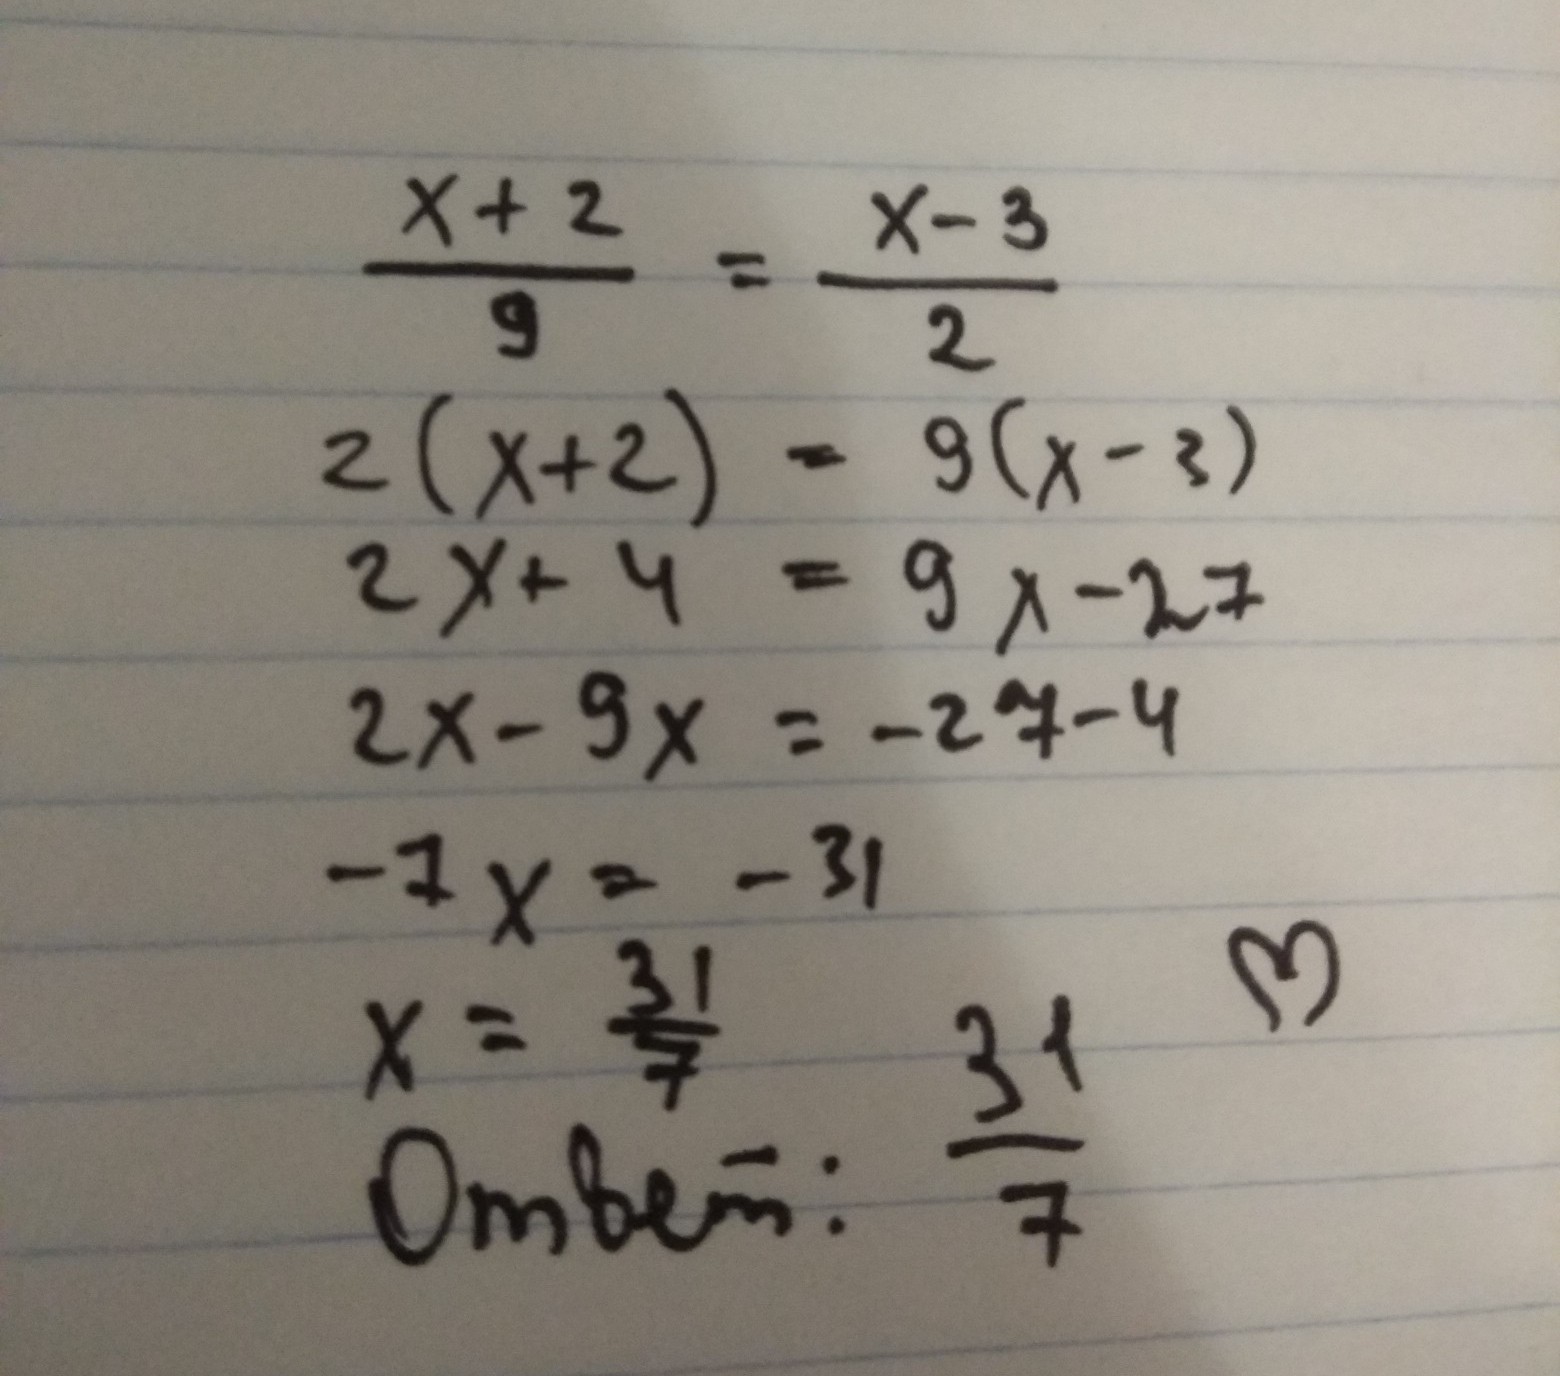 x+2/9 = x-3/2
2(x+2) = 9(x-3)
2x+4 = 9x-27
2x-9x = -27-4
-7x = -31
x = 31/7
Ответ: 31/7